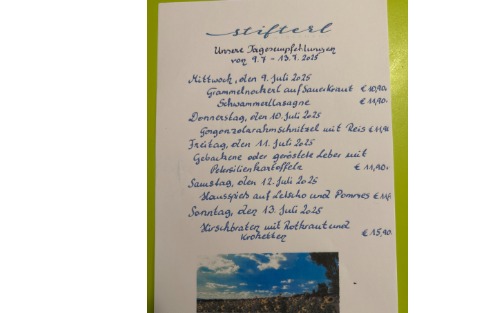 stifterl
Unsere Tagesempfehlungen
von 9.7 - 13.7.2025
Mittwoch, den 9. Juli 2025
Grammelnockerl auf Sauerkraut € 10,90.
Schwammerllasagne € 11,90.
Donnerstag, den 10. Juli 2025
Gorgonzolarahmschnitzel mit Reis € 11,90
Freitag, den 11. Juli 2025
Gebackene oder geröstete Leber mit
Petersilienkartoffeln € 11,90.
Samstag, den 12. Juli 2025
Hausspieß auf Letscho und Pommes
Sonntag, den 13. Juli 2025
Hirschbraten mit Rotkraut und
Kroketten € 15,90.